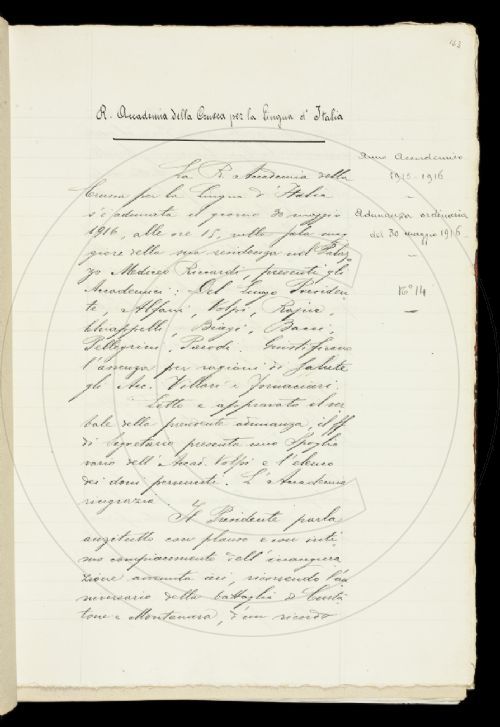 163
R. Accademia della Crusca per la Lingua d'Italia
Anno Accademico
1915-1916
Adunanza ordinaria
del 30 maggio 1916 -
N.º 14
La R. Accademia della
Crusca per la Lingua d'Italia
s'è adunata il giorno 30 maggio
1916, alle ore 15, nella sala mag
giore della sua residenza nel Palaz
zo Mediceo Riccardi, presenti gli
Accademici: Del Lungo Presiden
te, Alfani, Volpi, Rajna,
Chiappelli, Biagi, Bacci,
Pellegrini, Parodi. Giustificano
l'assenza per ragioni di salute
gli Acc. Villari e Fornaciari.
Letto e approvato il ver
bale della precedente adunanza, il ff.
di Segretario presenta uno Spoglio
vario dell'Accad. Volpi e l'elenco
dei doni pervenuti. L'Accademia
ringrazia.
Il Presidente parla
anzitutto con plauso e con inti
mo compiacimento dell'inaugura
zione avvenuta ieri, ricorrendo l'an
niversario della battaglia di Curta
tone e Montanara, d'un ricordo